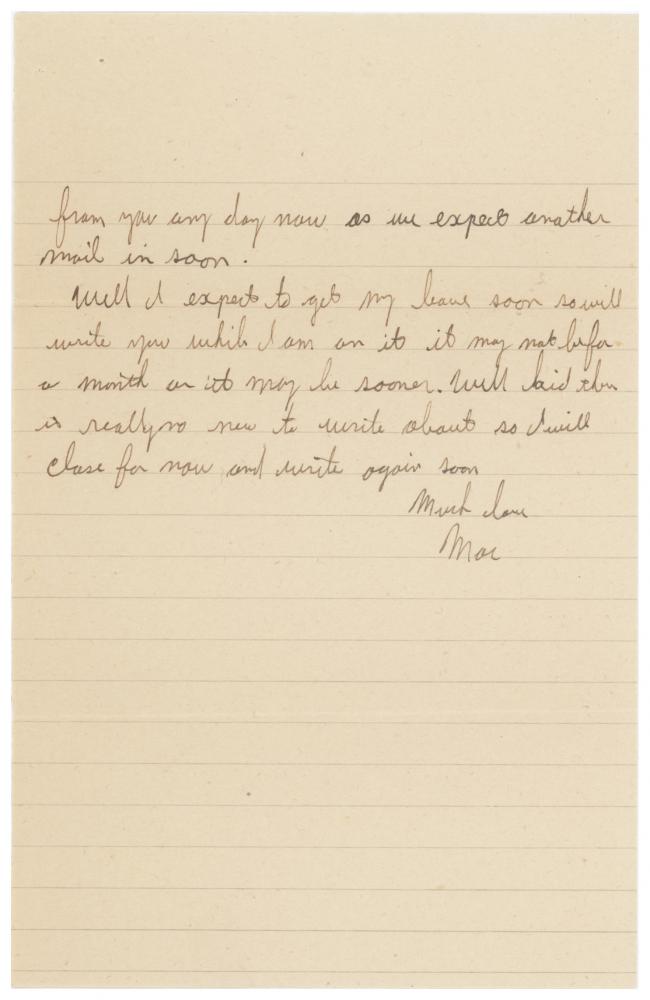 from you any day now as we expect another
mail in soon.
Well I expect to get my leave soon so will
write you while I am on it it may not be for
a month or it may be sooner. Well kid there
is really no new to write about so I will
close for now and write again soon
Much love
Mac